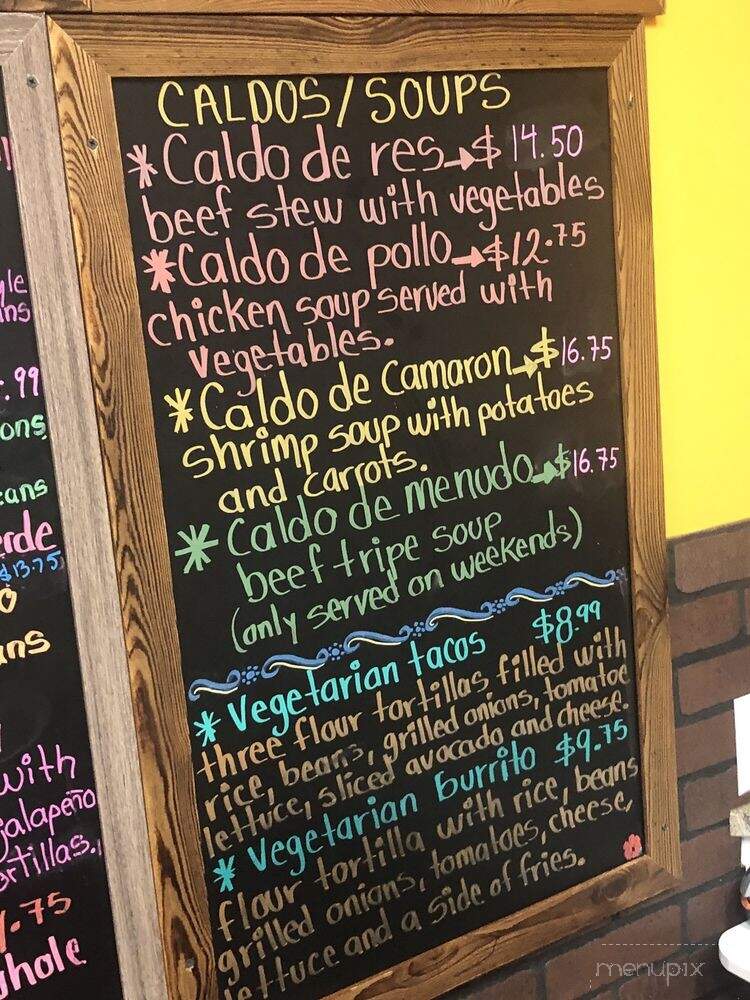 CALDOS/SOUPS
*Caldo de res→$14.50
beef stew with vegetables
*Caldo de pollo→$12.75
chicken soup served with
vegetables.
*Caldo de Camaron→$16.75
shrimp soup with potatoes
and carrots.
*Caldo de menudo→$16.75
beef tripe soup
(only served on weekends)
*Vegetarian tacos $8.99
three flour tortillas filled with
rice, beans, grilled onions, tomatoe
lettuce, sliced avocado and cheese.
*Vegetarian burrito $9.75
flour tortilla with rice, beans
grilled onions, tomatoes, cheese,
lettuce and a side of fries.
.99
$13.75
with
jalapeño
.75
whole
menupix